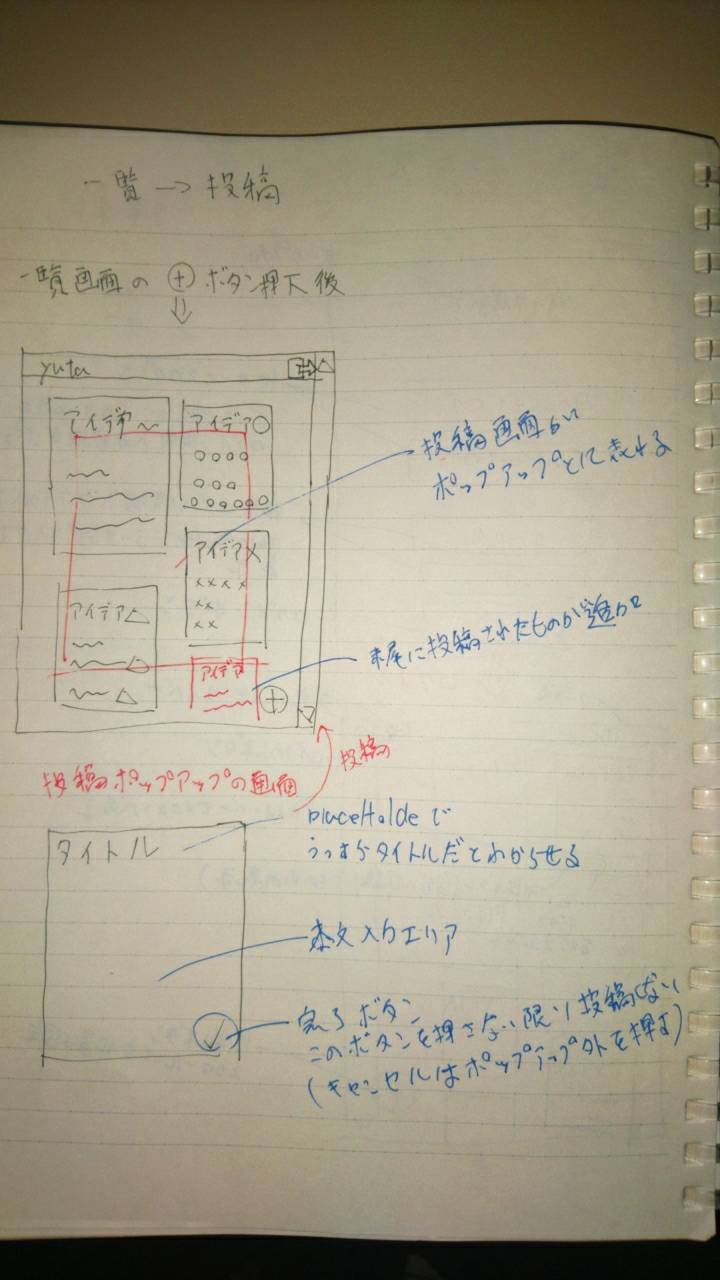 一覧→投稿
一覧画面の⊕ボタン押下後
⇓
yuta
アイデア〜
アイデア○
○○○○
○○○
○○○○○○
アイデア×
××××
××
××
アイデア△
△
△
アイデア
投稿画面が
ポップアップとして表れる
末尾に投稿されたものが追加
投稿
投稿ポップアップの画面
タイトル
placeHoldeで
うっすらタイトルだとわからせる
本文入力エリア
完了ボタン
このボタンを押さない限り投稿しない
(キャンセルはポップアップ外を押す)